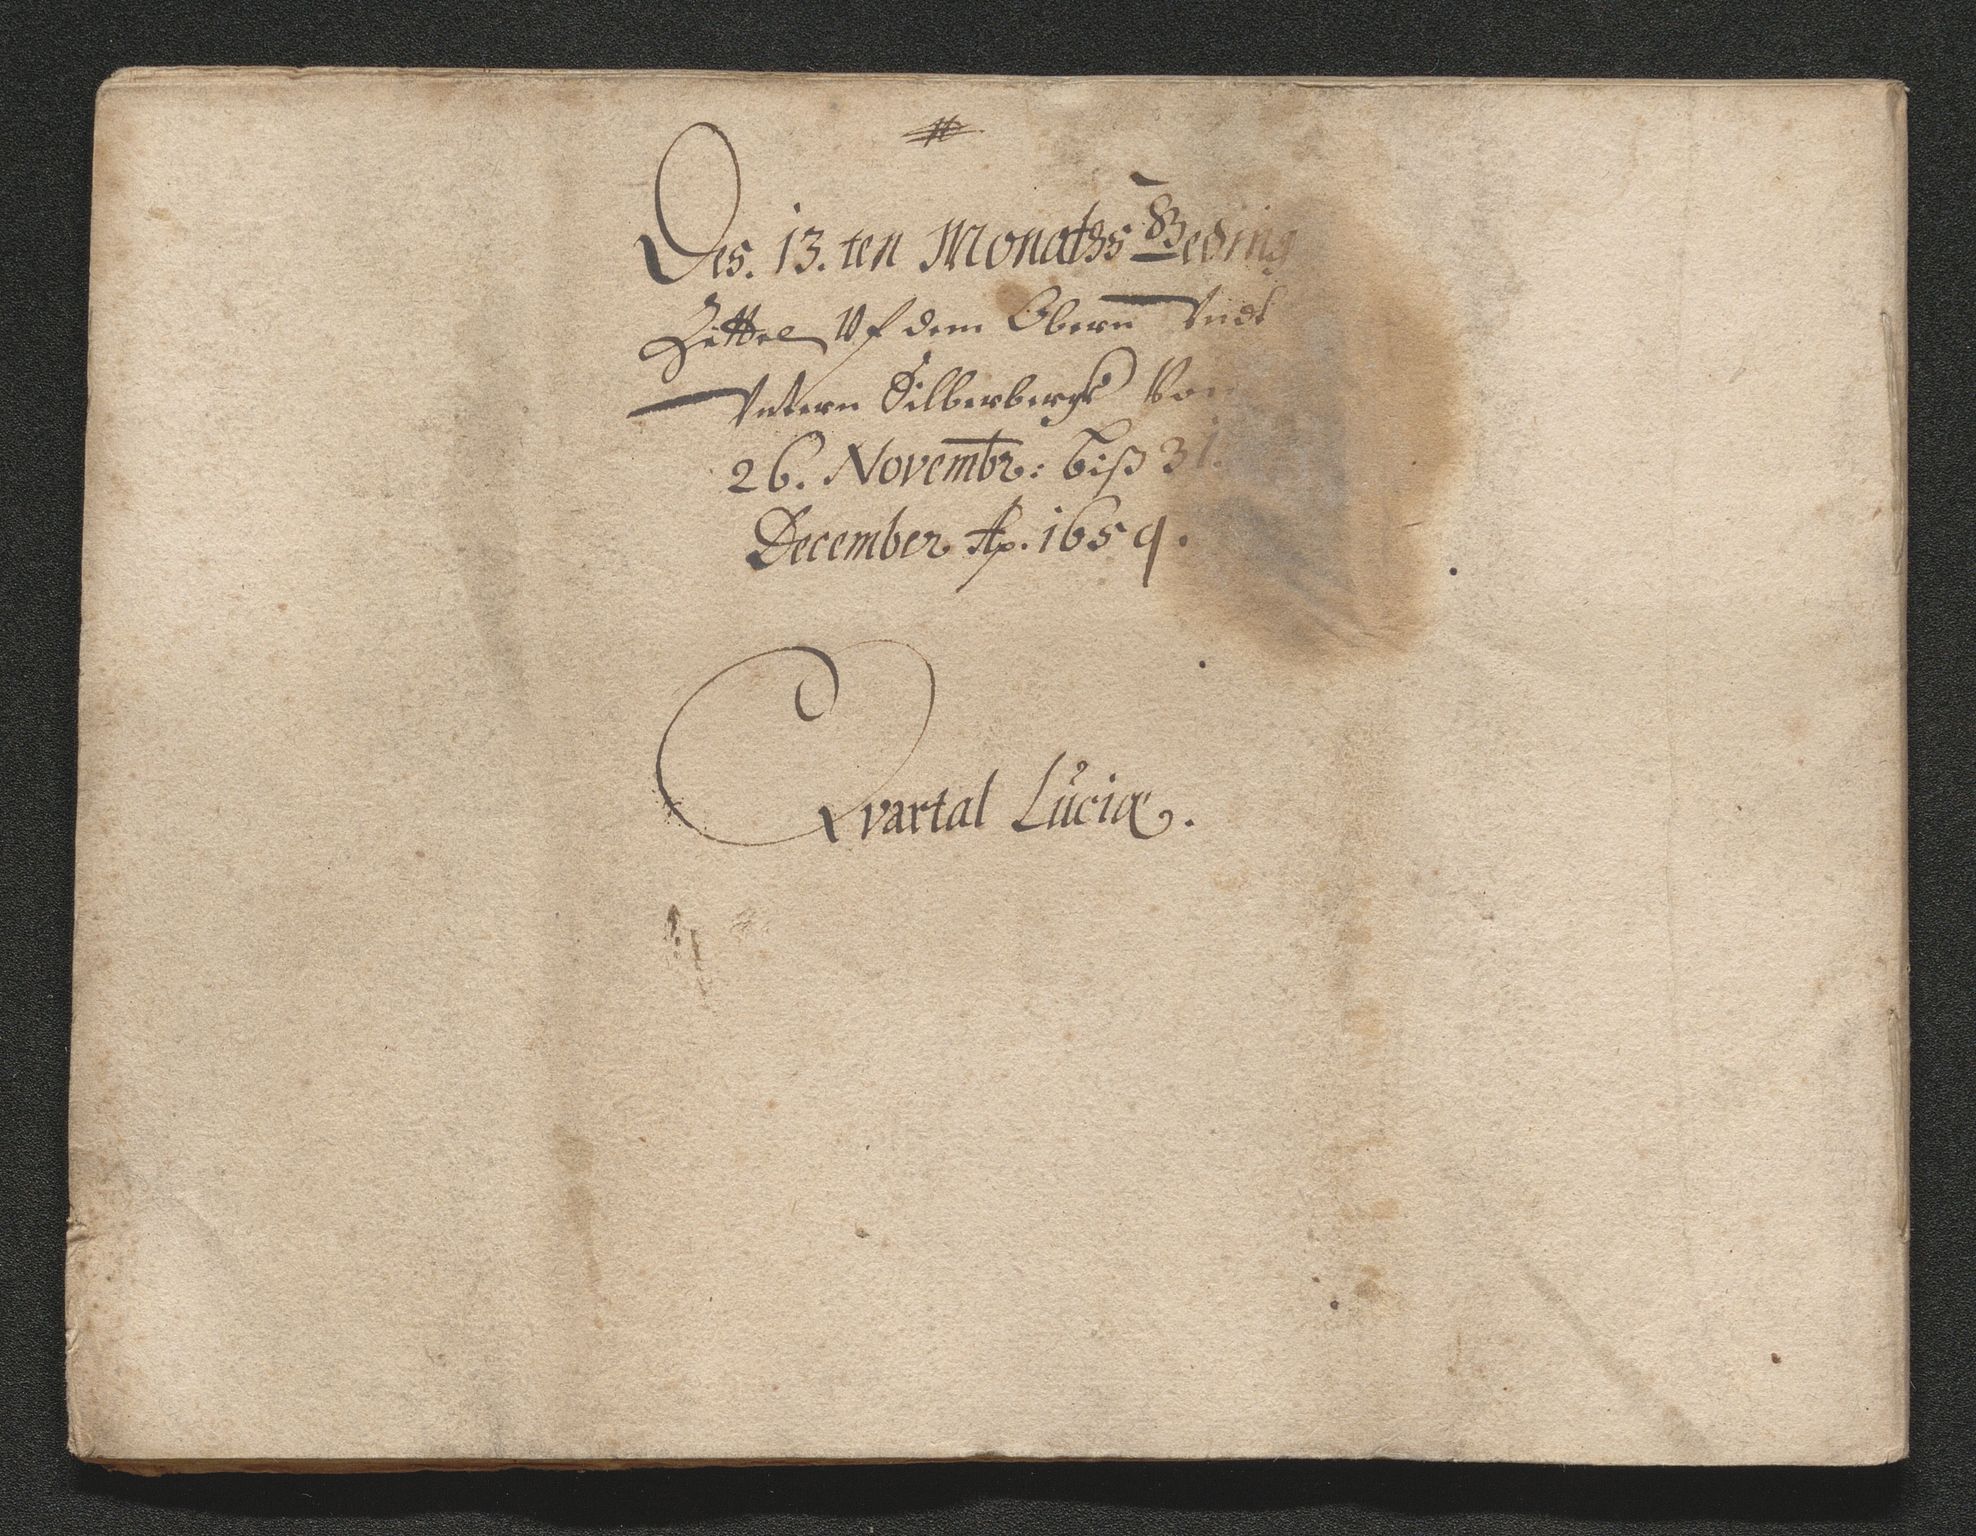 Des. 13. ten Monaths Beding
Zettel Vf dem Obern Vndt
Vntern Silberbergk Von
26. Novembr: biß 31.
December Ao. 1659.
Qvartal Luciæ.